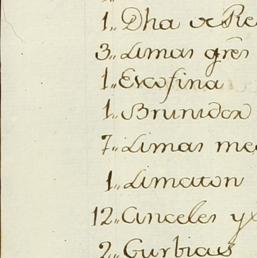 1,, Dha de Pie
3,, Limas grẽs
1,, Escofina
1,, Brunidor
7,, Limas me
1,, Limaton
12,, Cinceles y
2,, Gurbias